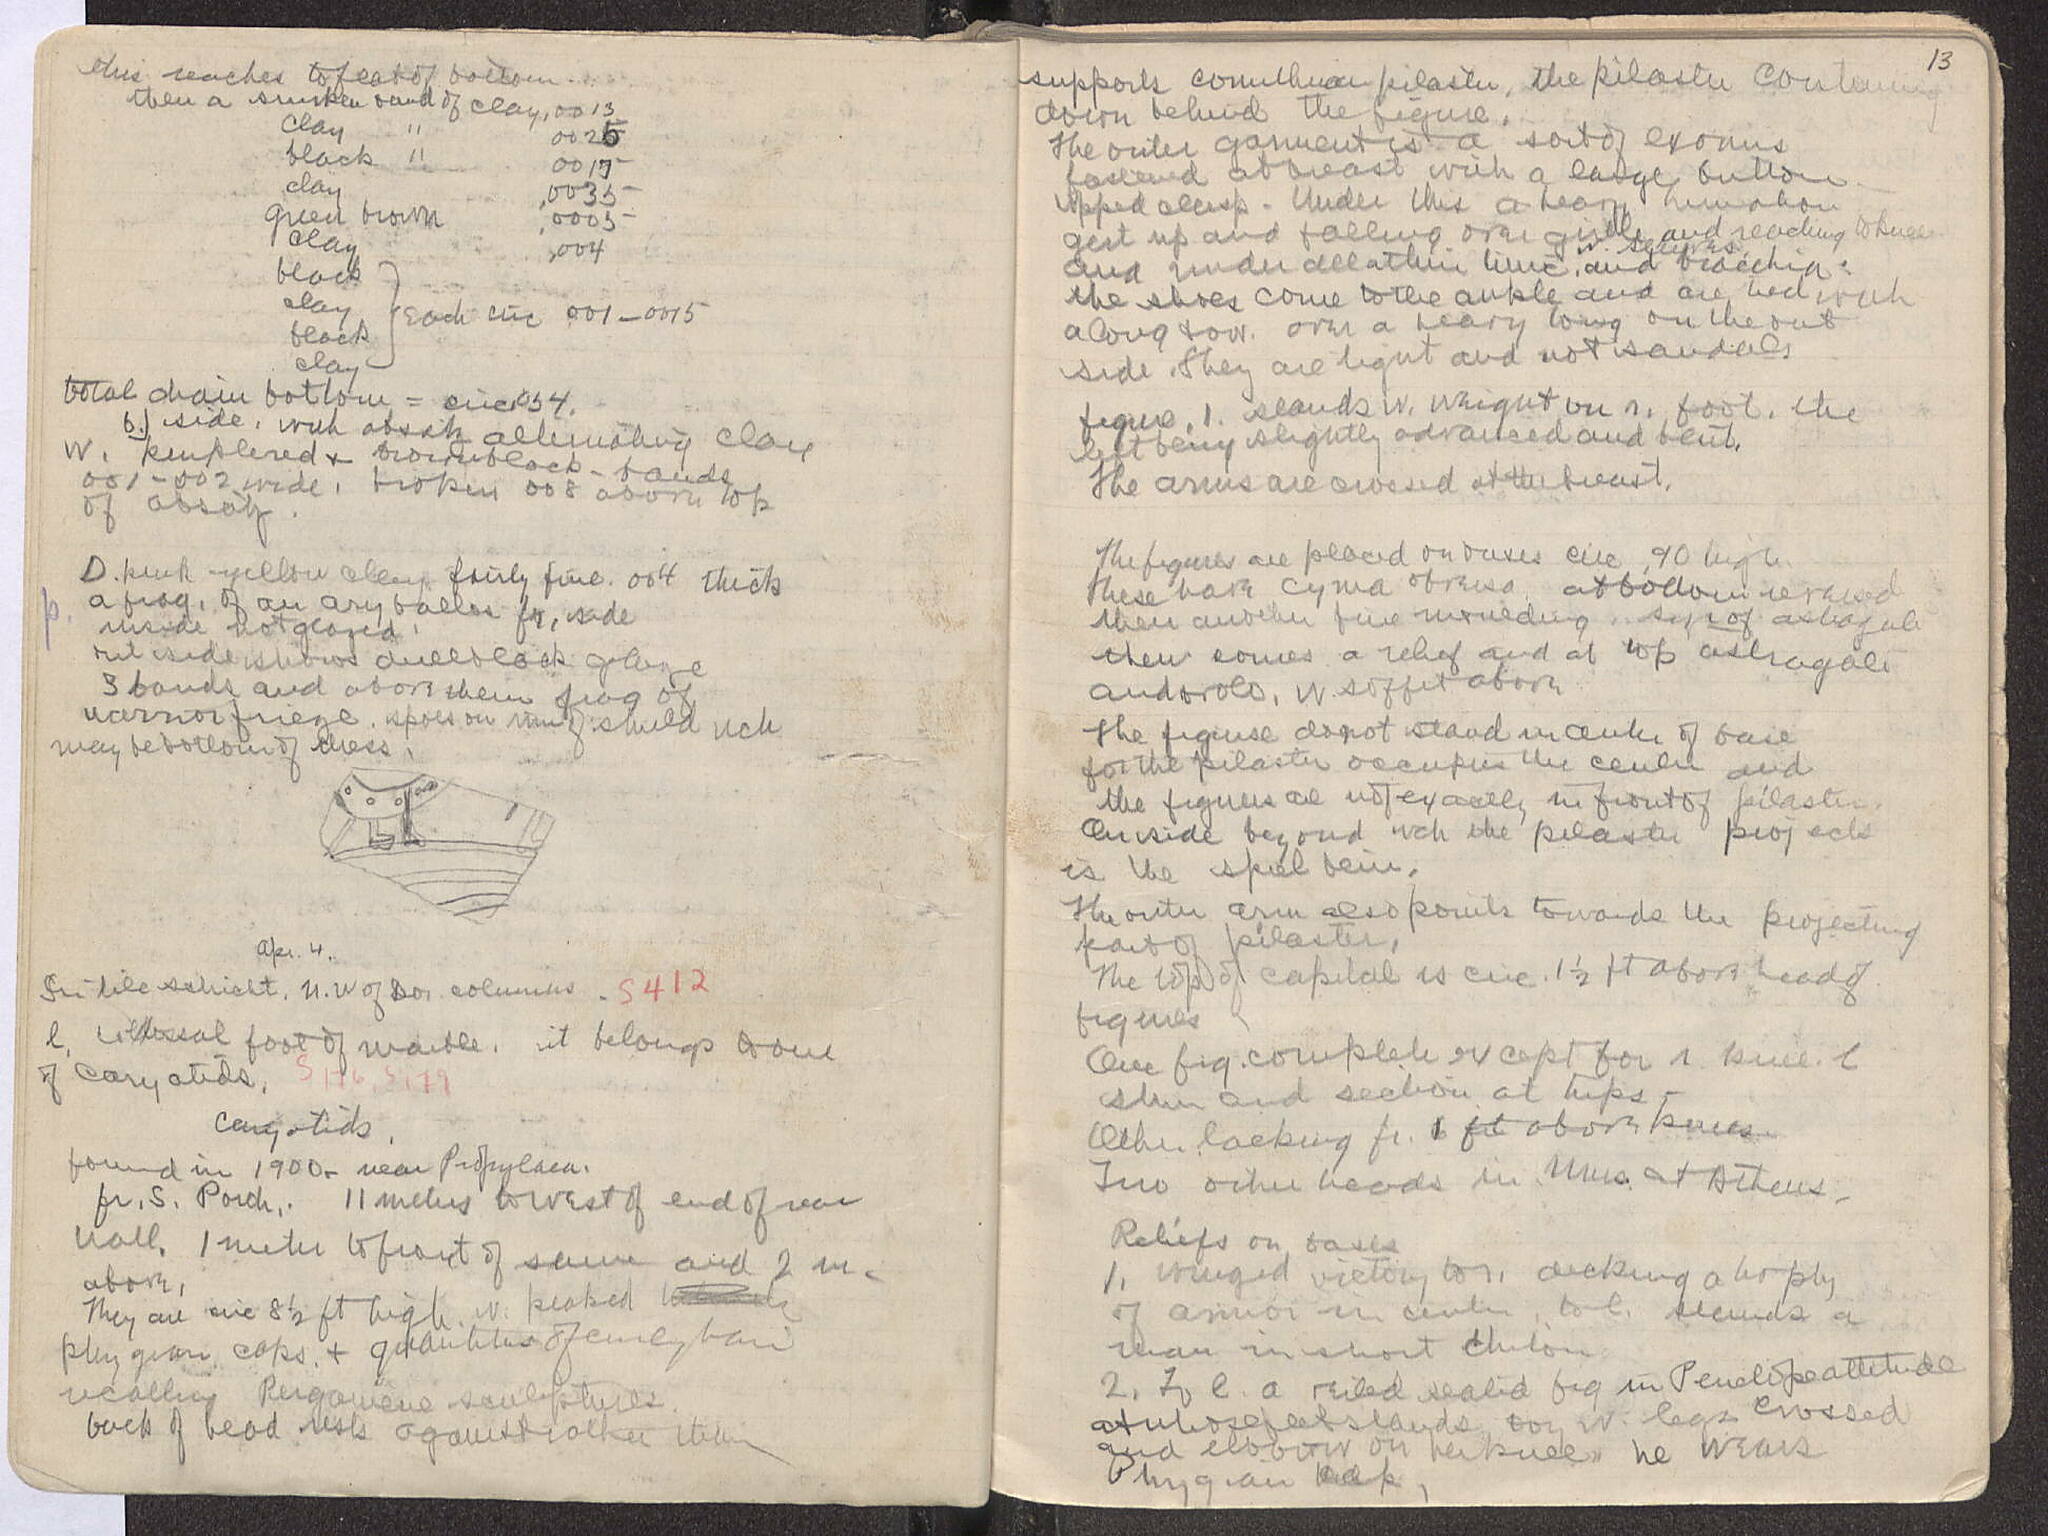 this reaches to flat of bottom
then a sunken band of clay, .0013
clay " 0025
black " 0015
clay .0035
green brown .0005
clay .004
black
clay
black
clay
each circ 001-0015
total diam bottom = circ 054.
b.) side, with alternating clay
w. & brown black bands
001-002 wide, broken 008 above top
of
D. pink yellow clay fairly fine. 004 thick
p. a frag. of an aryballos fr. side
inside not glazed.
outside shows dull black glaze
3 bands and above them frag of
warrior frieze. spots on rim of shield wch
may be bottom of dress.
Apr. 4.
In tile schicht, N.W of Dor columns. S 412
1. Colossal foot of marble. it belongs to one
of Caryatids. S 176, S 179
Caryatids.
found in 1900 - near Propylaea.
fr. S. Porch. 11 meters to west of end of rear
wall, 1 meter to front of same and 2 m.
above.
They are circ 8½ ft high w. peaked
phrygian caps, + quantities of curly hair
recalling Pergamene sculptures.
back of head rests against rather thin
13
supports corinthian pilaster, the pilaster continuing
down behind the figure.
The outer garment is a sort of exomis
fastened at breast with a large button
tipped clasp. Under this a heavy himation
girt up and falling over girdle and reaching to knee
and under all a thin tunic, w. sleeves, and bracchia.
the shoes come to the ankle and are tied with
a long bow over a heavy tong on the out
side. They are light and not sandals
figure 1. stands w. weight on r. foot, the
left being slightly advanced and bent.
The arms are crossed at the breast.
The figures are placed on bases circ .90 high.
These have cyma at bottom reversed
then another fine moulding sep. of astragali
then comes a relief and at top astragali
and ovolo, w. soffit above
The figures do not stand in center of base
for the pilaster occupies the center and
the figures are not exactly in front of pilaster.
On side beyond wch the pilaster projects
is the spiel bein.
The outer arm also points towards the projecting
part of pilaster.
The top of capital is circ. 1½ ft above head of
figures
One fig. complete except for r. knee. l
shin and section at hips -
Other lacking fr. 1 ft above knees
Two other heads in Mus. at Athens.
Reliefs on bases
1. winged victory to r. decking a trophy
of armor in center, to l. stands a
man in short chiton
2. To l. a veiled seated fig in Penelope attitude
at whose feet stands boy w. legs crossed
and elbow on her knee. he wears
Phrygian cap.